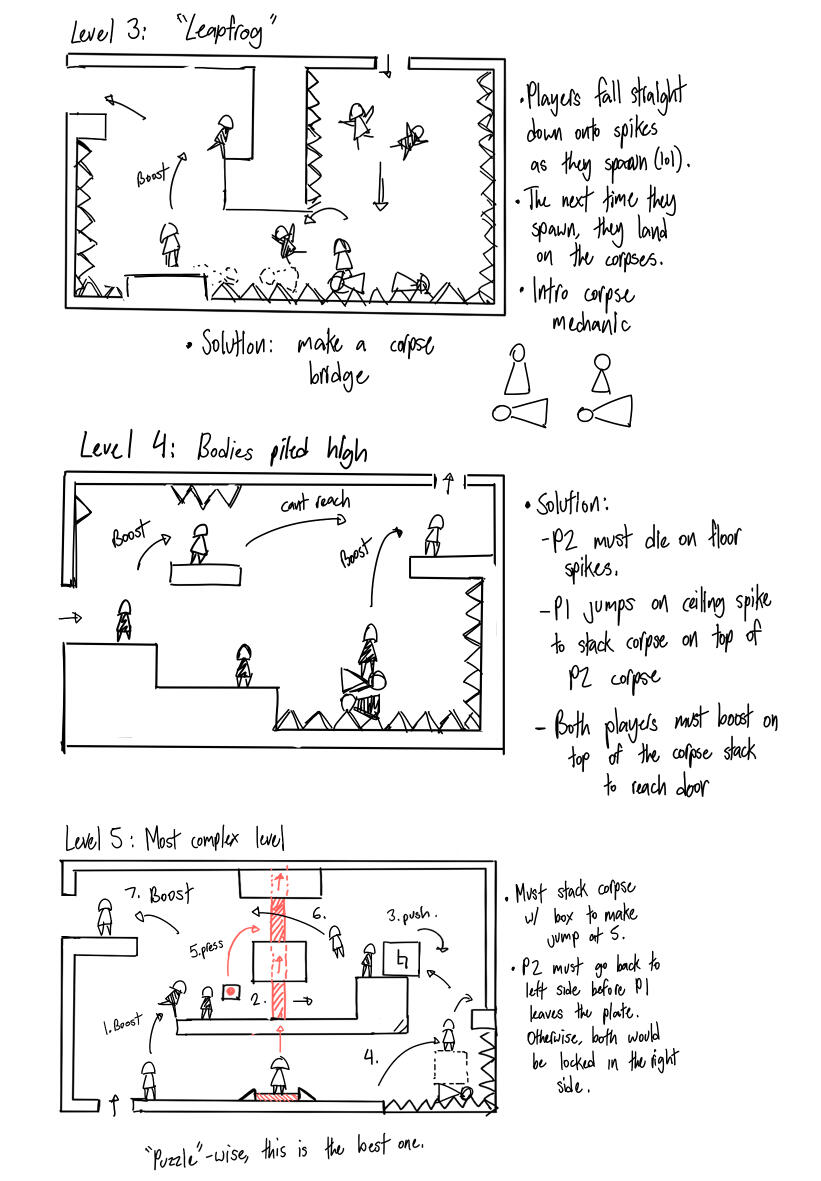 Level 3: "Leapfrog"
Boost
• Players fall straight
down onto spikes
as they spawn (lol).
• The next time they
spawn, they land
on the corpses.
• Intro corpse
mechanic
• Solution: make a corpse
bridge
Level 4: Bodies piled high
Boost
cant reach
Boost
• Solution:
- P2 must die on floor
spikes.
- P1 jumps on ceiling spike
to stack corpse on top of
P2 corpse
- Both players must boost on
top of the corpse stack
to reach door
Level 5: Most complex level
7. Boost
6.
3. push.
5. press
2.
1. Boost
4.
• Must stack corpse
w/ box to make
jump at 5.
• P2 must go back to
left side before P1
leaves the plate.
Otherwise, both would
be locked in the right
side.
"Puzzle"-wise, this is the best one.